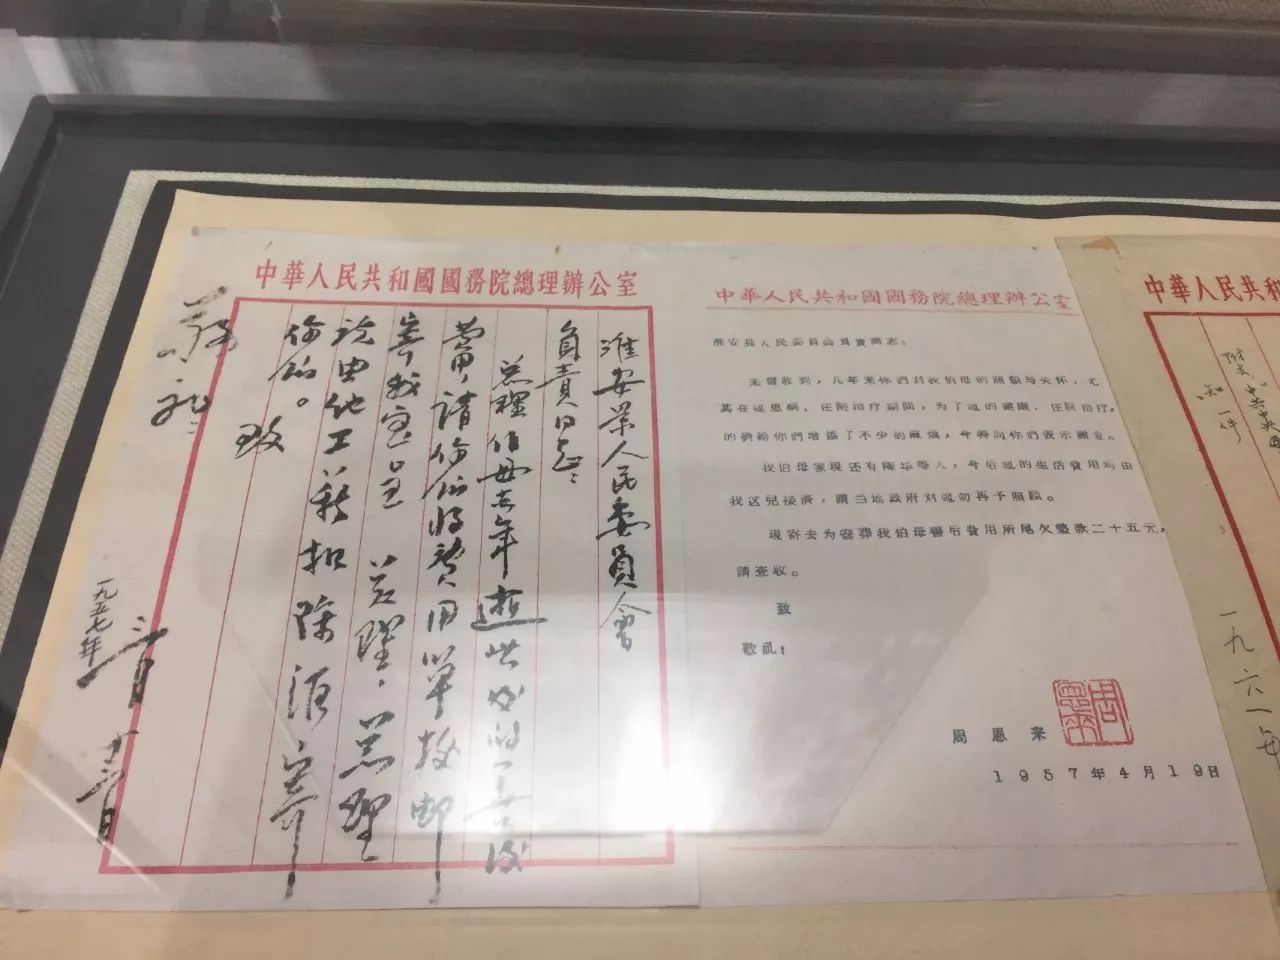 中華人民共和國國務院總理辦公室
淮安県人民委員會
負責同志：
总理伯母去年逝世后的善后
費，請你們將費用單据邮
寄我室呈总理，总理
說由他工薪扣除后寄
你們。
致
敬礼
一九五七年
三月
十六日
中華人民共和國國務院總理辦公室
淮安县人民委員会負責同志：
来信收到，几年来你們对我伯母的照顧与关怀，尤
其在她患病、住院治疗期間，为了她的健康、住院治疗，
的确給你們增添了不少的麻煩，今特向你們表示謝意。
我伯母家現还有陶华等人，今后她的生活費用均由
我这儿接济，請当地政府对她勿再予照顧。
現寄去为安葬我伯母善后費用所尾欠墊款二十五元，
請查收。
致
敬礼！
周恩来
1957年4月19日
中華人民共和
一九六一年